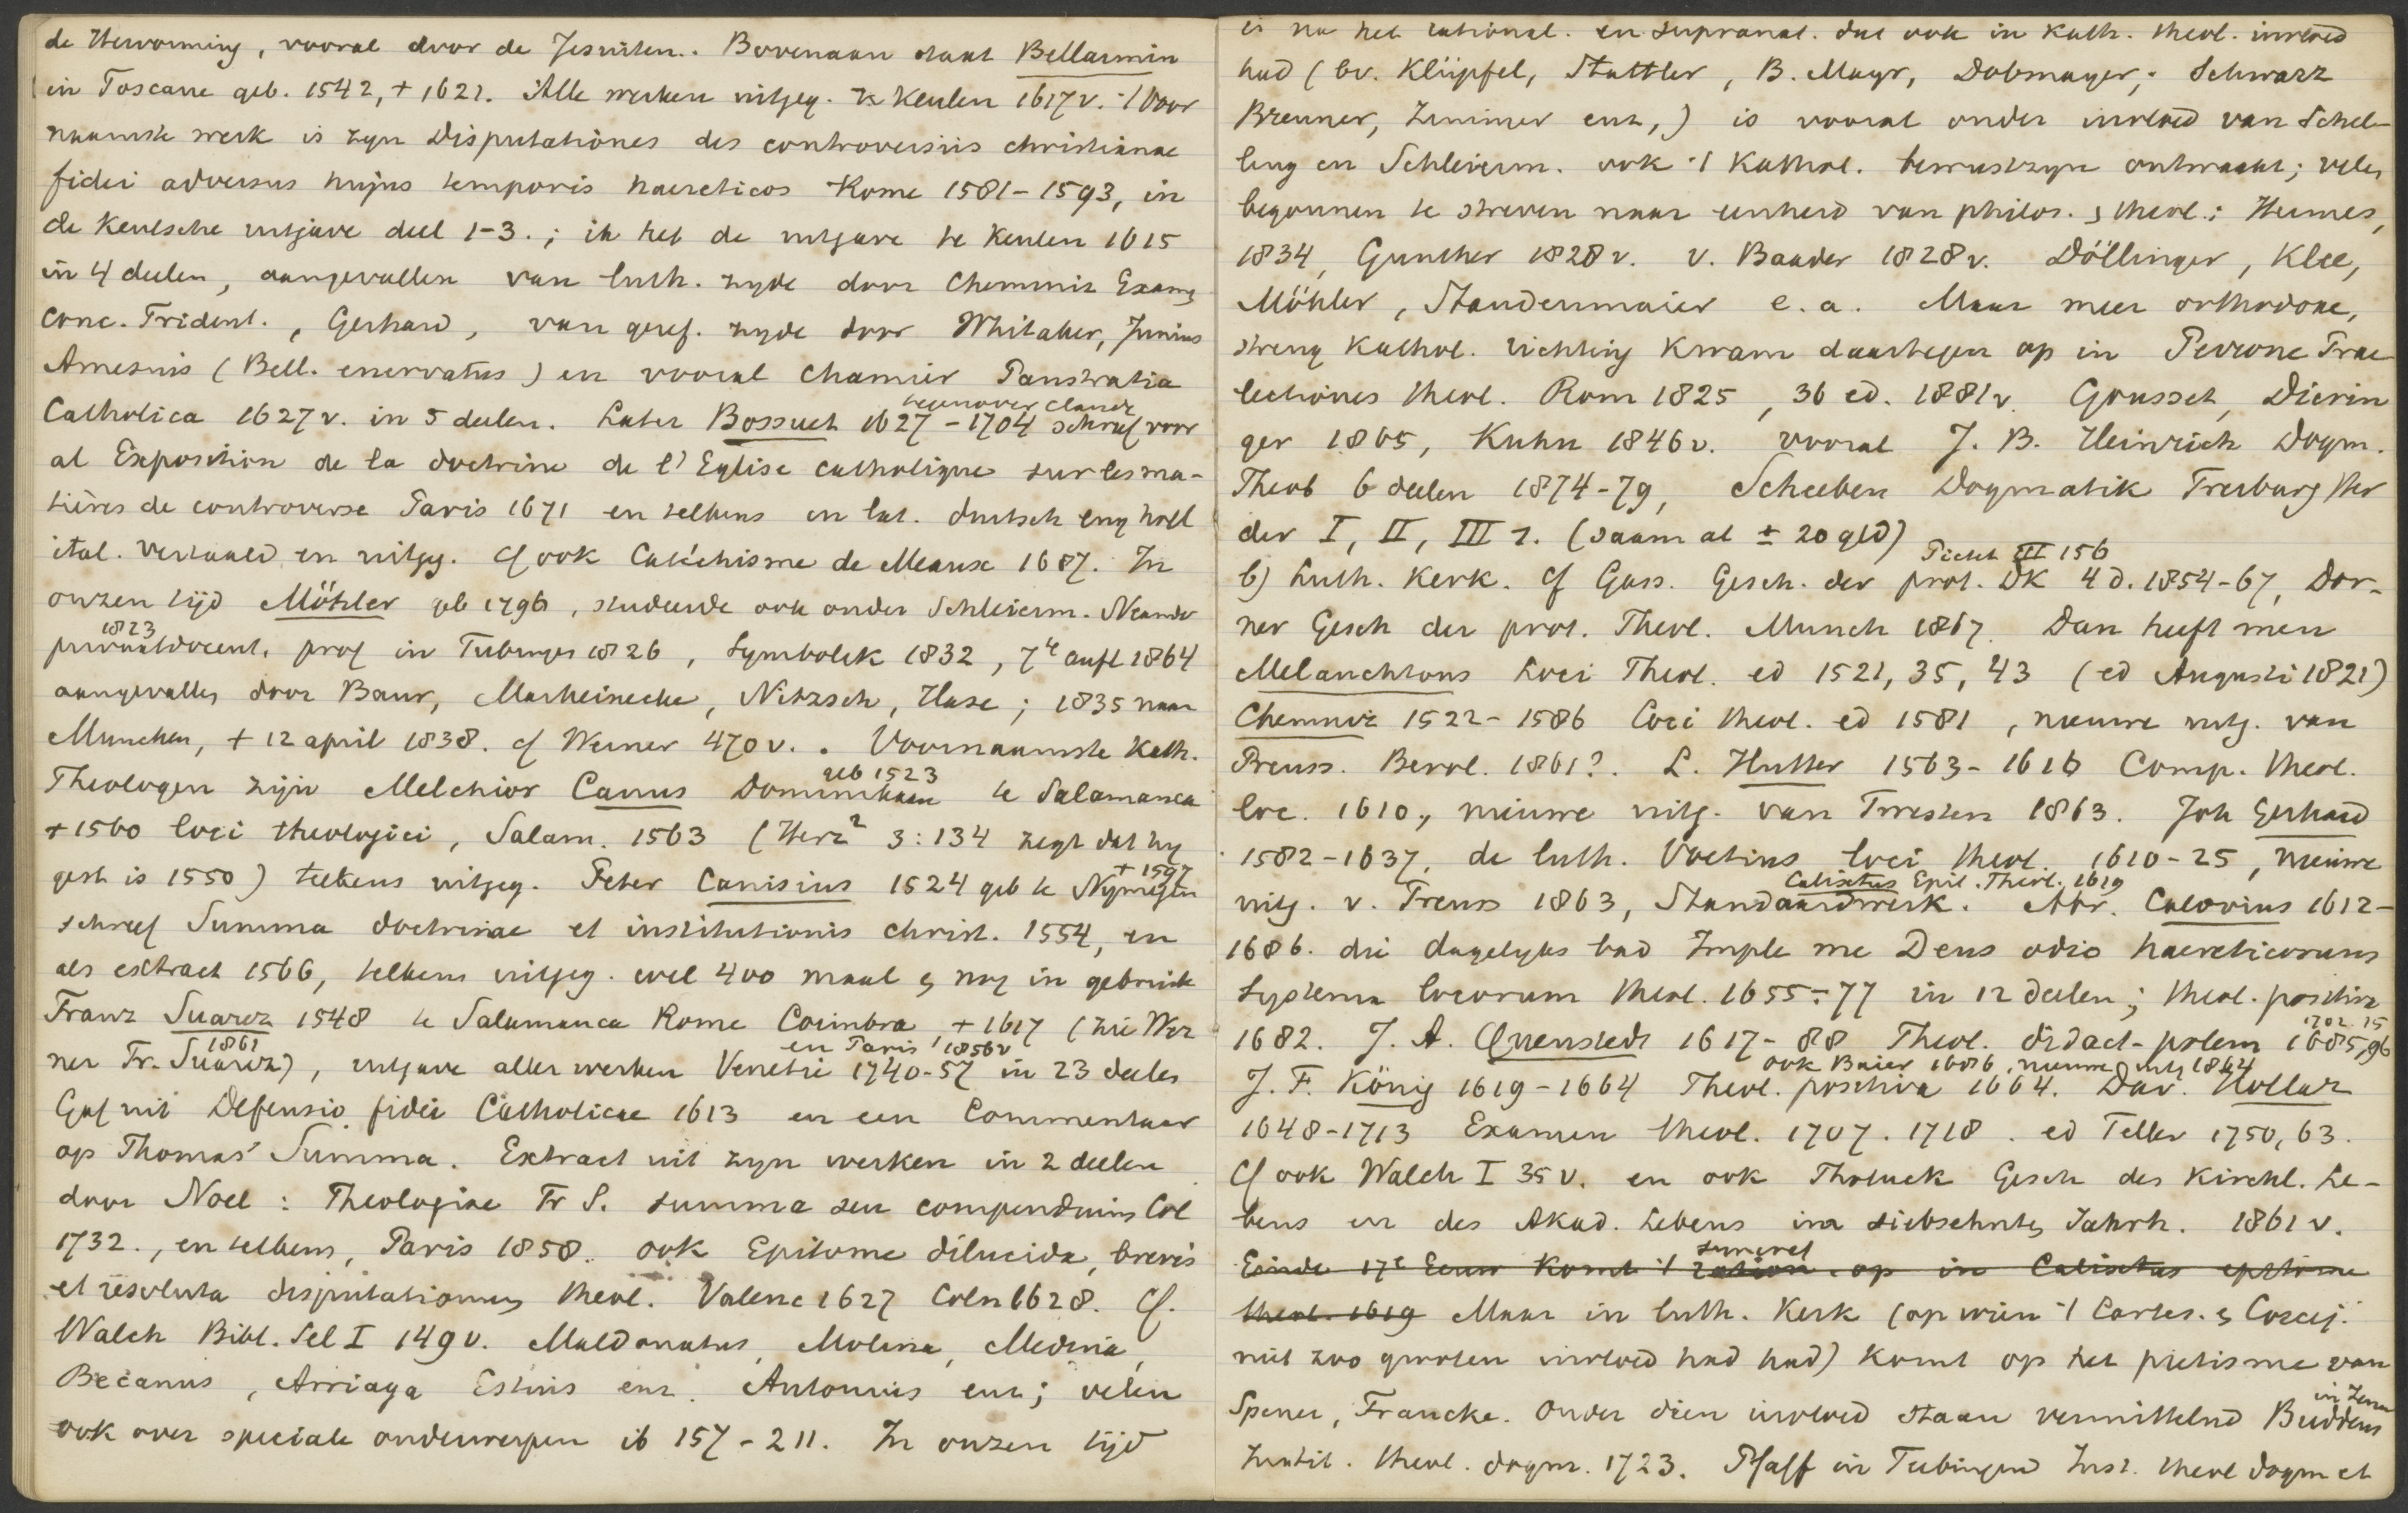 de Hervorming, vooral door de Jesuiten. Bovenaan staat Bellarmin
in Toscane geb. 1542, + 1621. Alle werken uitgeg. te Keulen 1617 v. 't Voor
naamste werk is zyn Disputationes des controversiis christianae
fidei adversus hujus temporis haereticos Rome 1581-1593, in
de Keulsche uitgave deel 1-3.; ik heb de uitgave te Keulen 1615
in 4 deelen, aangevallen van luth. zyde door Chemniz Exam
Conc. Trident., Gerhard, van geref. zyde door Whitaker, Junius
Amesius (Bell. enervatus) en vooral Chamier Panstratia
Catholica 1627 v. in 5 deelen. Later Bossuet 1627-1704 schreef voor
tegenover Claude
al Exposition de la doctrine de l'Eglise catholique sur les ma-
tières de controverse Paris 1671 en telkens in lat. duitsch eng holl
ital. vertaald en uitgeg. Cf ook Catéchisme de Meaux 1687. In
onzen tijd Möhler geb 1796, studeerde ook onder Schleierm. Neander
1823
privaatdocent, prof in Tubingen 1826, Symbolik 1832, 7e aufl 1864
aangevallen door Baur, Marheinecke, Nitzsch, Hase; 1835 naar
Munchen, + 12 april 1838. cf Werner 470 v.. Voornaamste Kath.
Theologen zijn Melchior Canus Dominikaan te Salamanca
geb 1523
+ 1560 loci theologici, Salam. 1563 (Herz² 3:134 zegt dat hy
gest is 1550) telkens uitgeg. Peter Canisius 1524 geb te Nymegen
+ 1597
schreef Summa doctrinae et institutionis christ. 1554, en
als extract 1566, telkens uitgeg. wel 400 maal & nog in gebruik
Franz Suarez 1548 te Salamanca Rome Coimbra + 1617 (zie Wer
1861
ner Fr. Suarez), uitgave aller werken Venetie 1740-57 in 23 deelen
en Paris 1856 v
Gaf uit Defensio fidei Catholicae 1613 en een Commentaar
op Thomas' Summa. Extract uit zyn werken in 2 deelen
door Noel: Theologiae Fr S. summa seu compendium Col
1732., en telkens, Paris 1858. ook Epitome dilucida, brevis
et resoluta disputationum theol. Valenc 1627 Coln 1628. Cf.
Walch Bibl. Sel I 149 v. Maldonatus, Molina, Medina,
Becanus, Arriaga Estius enz. Antonius enz; velen
ook over speciale onderwerpen ib 157-211. In onzen tijd
is na het rational. en supranat. dat ook in Kath. theol. invloed
had (bv. Klüpfel, Stattler, B. Mayr, Dobmayer, Schwarz
Brenner, Zimmer enz,) is vooral onder invloed van Schel-
ling en Schleierm. ook 't Kathol. bewustzyn ontwaakt; velen
begonnen te streven naar eenheid van philos. & theol.: Hermes,
1834, Gunther 1828 v. v. Baader 1828 v. Döllinger, Klee,
Möhler, Staudenmaier e.a. Maar meer orthodoxe,
streng Kathol. richting kwam daartegen op in Perrone Prae
lectiones theol. Rom 1825, 36 ed. 1881 v. Gousset, Dierin
ger 1865, Kuhn 1846 v. vooral J. B. Heinrich Dogm.
Theol 6 deelen 1874-79, Scheeben Dogmatik Freiburg Her
der I, II, III 1. (saam al ± 20 gld)
Pictet III 156
b) Luth. Kerk. Cf Gass. Gesch. der prot. DK 4 d. 1854-67, Dor-
ner Gesch der prot. Theol. Munch 1867. Dan heeft men
Melanchtons Loci Theol. ed 1521, 35, 43 (ed Augusti 1821)
Chemniz 1522-1586 Loci theol. ed 1581, nieuwe uitg. van
Preuss. Berol. 1861?. L. Hutter 1563-1616 Comp. theol.
loc. 1610, nieuwe uitg. van Twesten 1863. Joh Gerhard
1582-1637, de luth. Voetius loci theol. 1610-25, nieuwe
Calixtus Epit. Theol. 1619
uitg. v. Preuss 1863, Standaardwerk. Abr. Calovius 1612-
1686. die dagelyks bad Imple me Deus odio haereticorum
Systema locorum theol. 1655-77 in 12 deelen; theol. positiva
1682. J. A. Quenstedt 1617-88 Theol. didact-polem 1685, 96
1702. 15
ook Baier 1686, nieuwe uitg 1864
J. F. König 1619-1664 Theol. positiva 1664. Dav. Hollaz
1648-1713 Examen theol. 1707. 1718. ed Teller 1750, 63.
Cf ook Walch I 35 v. en ook Tholuck Gesch des Kirchl. Le-
bens en des Akad. Lebens im siebsehnten Jahrh. 1861 v.
Einde 17e Eeuw komt 't op in Calixtus epitome
theol. 1619 Maar in luth. Kerk (op wien 't Cartes. & Coccej.
niet zoo grooten invloed had had) komt op het pietisme van
Spener, Francke. Onder dien invloed staan vermittelnd Buddeus
in Jena
Instit. theol. dogm. 1723. Pfaff in Tubingen Inst. theol dogm et